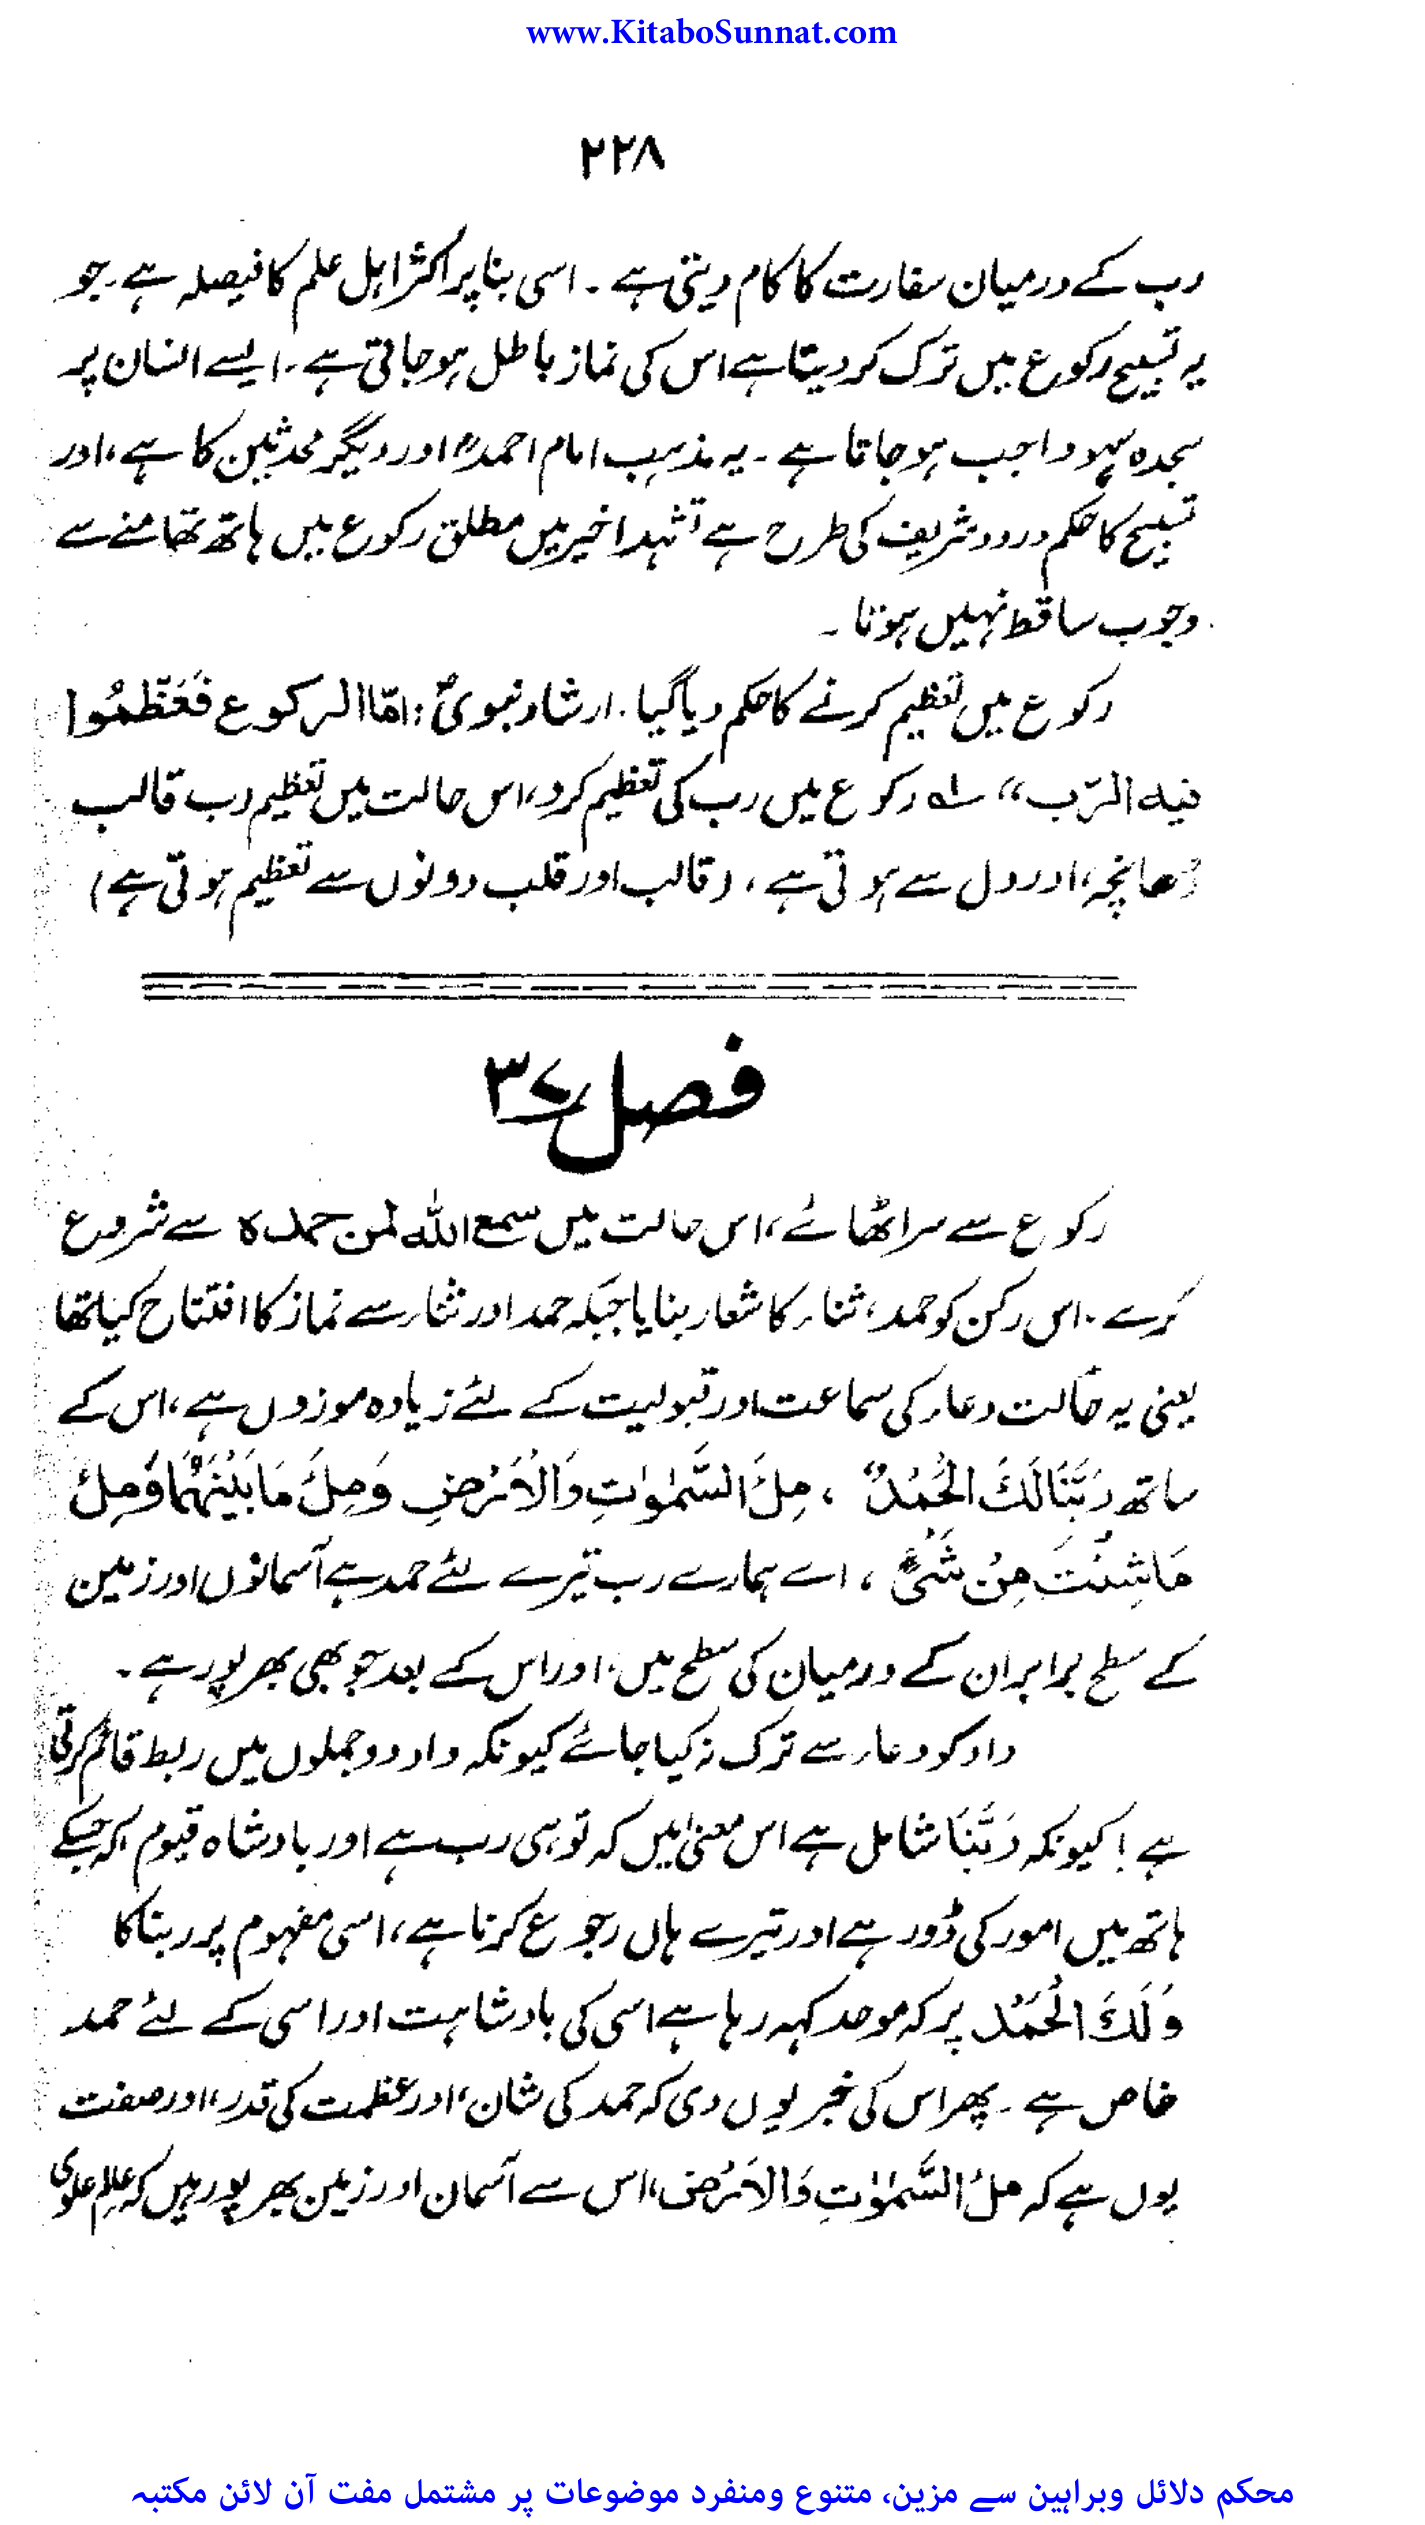 www.KitaboSunnat.com
۲۲۸
رب کے درمیان سفارت کا کام دیتی ہے ۔ اسی بنا پر اکثر اہل علم کا فیصلہ ہے۔ جو
یہ تسبیح رکوع میں ترک کر دیتا ہے اس کی نماز باطل ہو جاتی ہے ۔ ایسے انسان پر
سجدہ سہو واجب ہو جاتا ہے ۔ یہ مذہب امام احمدؒ اور دیگر محدثین کا ہے، اور
تسبیح کا حکم درود شریف کی طرح ہے تشہد اخیر میں مطلق رکوع میں ہاتھ تھامنے سے
وجوب ساقط نہیں ہوتا ۔
رکوع میں تعظیم کرنے کا حکم دیا گیا۔ ارشاد نبویؐ : امّا الرکوع فَعَظِّمُوا
فیہ الرّب“ لہ رکوع میں رب کی تعظیم کرو، اس حالت میں تعظیم رب قالب
ڈھانچہ، اور دل سے ہوتی ہے ، (قالب اور قلب دونوں سے تعظیم ہوتی ہے)
فصل ۳۷
رکوع سے سر اٹھائے، اس حالت میں سمع اللہ لمن حمدہ سے شروع
کرے ۔ اس رکن کو حمد، ثناء کا شعار بنایا جبکہ حمد اور ثناء سے نماز کا افتتاح کیا تھا
یعنی یہ حالت دعاء کی سماعت اور قبولیت کے لئے زیادہ موزوں ہے، اس کے
ساتھ رَبَّنَا لَكَ الْحَمْدُ ، مِلَ السَّمٰوٰتِ وَالْاَرْضِ وَمِلَ مَا بَيْنَهُمَا وَمِلُ
مَا شِئْتَ مِنْ شَىْءٍ ، اے ہمارے رب تیرے لئے حمد ہے آسمانوں اور زمین
کے سطح برابر ان کے درمیان کی سطح میں، اور اس کے بعد جو بھی بھر پور ہے ۔
واو کو دعاء سے ترک نہ کیا جائے کیونکہ واو دو جملوں میں ربط قائم کرتی
ہے ! کیونکہ رَبَّنَا شامل ہے اس معنیٰ میں کہ تو ہی رب ہے اور بادشاہ قیوم کہ جسکے
ہاتھ میں امور کی ڈور ہے اور تیرے ہاں رجوع کرنا ہے، اسی مفہوم پر ربنا کا
وَلَكَ الْحَمْدُ پر کہ موحد کہہ رہا ہے اسی کی بادشاہت اور اسی کے لئے حمد
خاص ہے ۔ پھر اس کی خبر یوں دی کہ حمد کی شان، اور عظمت کی قدر، اور صفت
یوں ہے کہ مِلُ السَّمٰوٰتِ وَالْاَرْضِ، اس سے آسمان اور زمین بھر پور ہیں کہ عالم علوی
محکم دلائل وبراہین سے مزین، متنوع ومنفرد موضوعات پر مشتمل مفت آن لائن مکتبہ